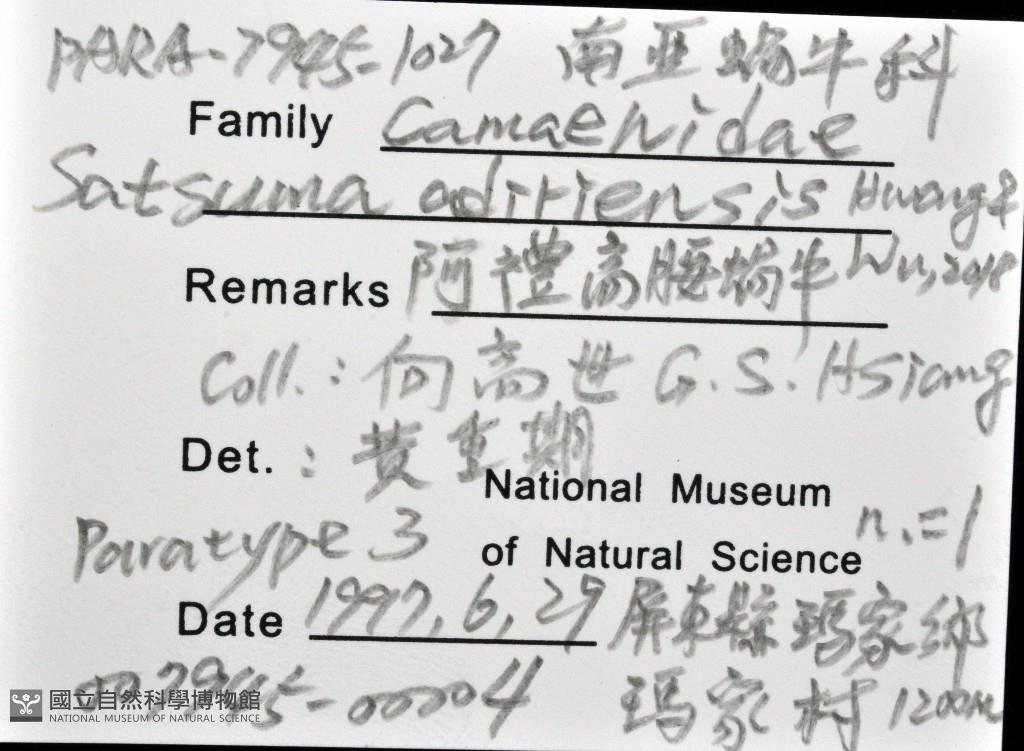 PARA-7945-1027 南亚蝸牛科
Family Camaenidae
Satsuma adiriensis Hwang &
Wu, 2018
Remarks 阿禮高腰蝸牛
Coll.: 向高世 G.S. Hsiang
Det.: 黄重期
National Museum
Paratype 3 of Natural Science n.=1
Date 1997, 6, 29 屏東縣瑪家鄉
007945-00004 瑪家村 1200m
國立自然科學博物館
NATIONAL MUSEUM OF NATURAL SCIENCE